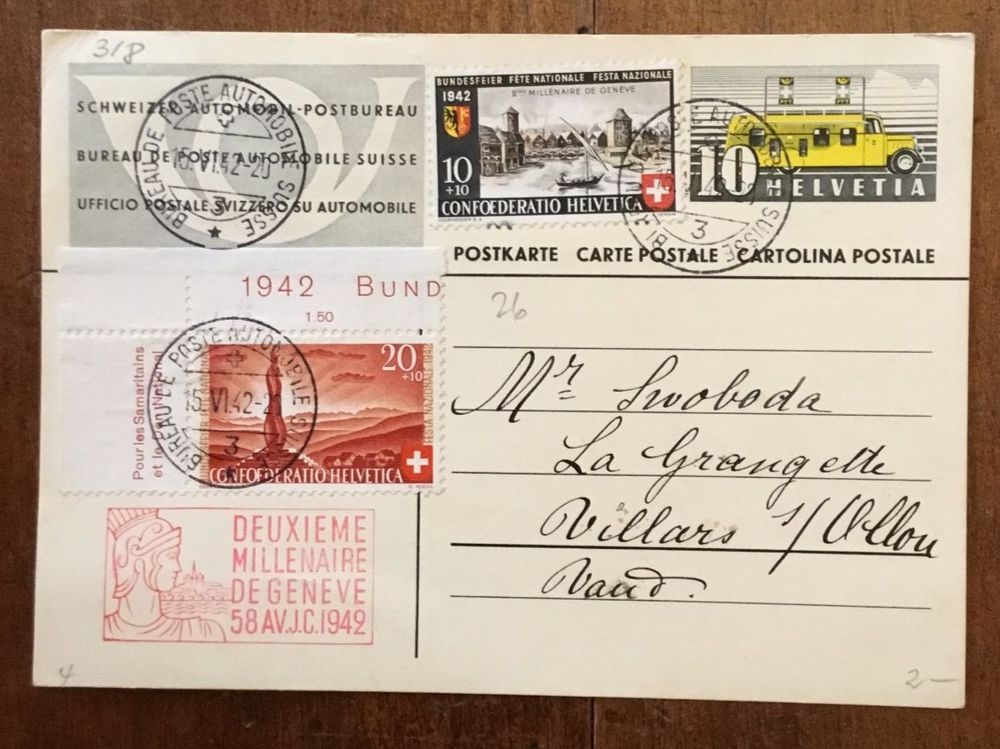 318
SCHWEIZER-AUTOMOBIL-POSTBUREAU
BUREAU DE POSTE AUTOMOBILE SUISSE
UFFICIO POSTALE SVIZZERO SU AUTOMOBILE
BUREAU DE POSTE AUTOMOBILE SUISSE
15.VI.42-20
3
BUNDESFEIER FÊTE NATIONALE FESTA NAZIONALE
1942
IIme MILLÉNAIRE DE GENÈVE
10
+10
CONFOEDERATIO HELVETICA
10 HELVETIA
3
POSTKARTE CARTE POSTALE CARTOLINA POSTALE
1942 BUND
1.50
Pour les Samaritains
et le Don National
20
+10
FESTA NAZIONALE 1942
CONFOEDERATIO HELVETICA
BUREAU DE POSTE AUTOMOBILE SUISSE
15.VI.42-20
3
DEUXIEME
MILLENAIRE
DE GENEVE
58 AV.J.C.1942
26
Mr Svoboda
La Grangette
Villars s/Ollon
Vaud.
4
2-